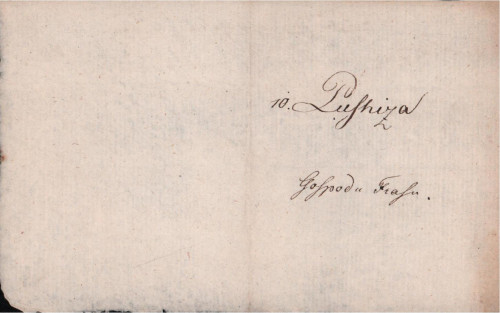 10. Pushiza
Gospodu Frasu.